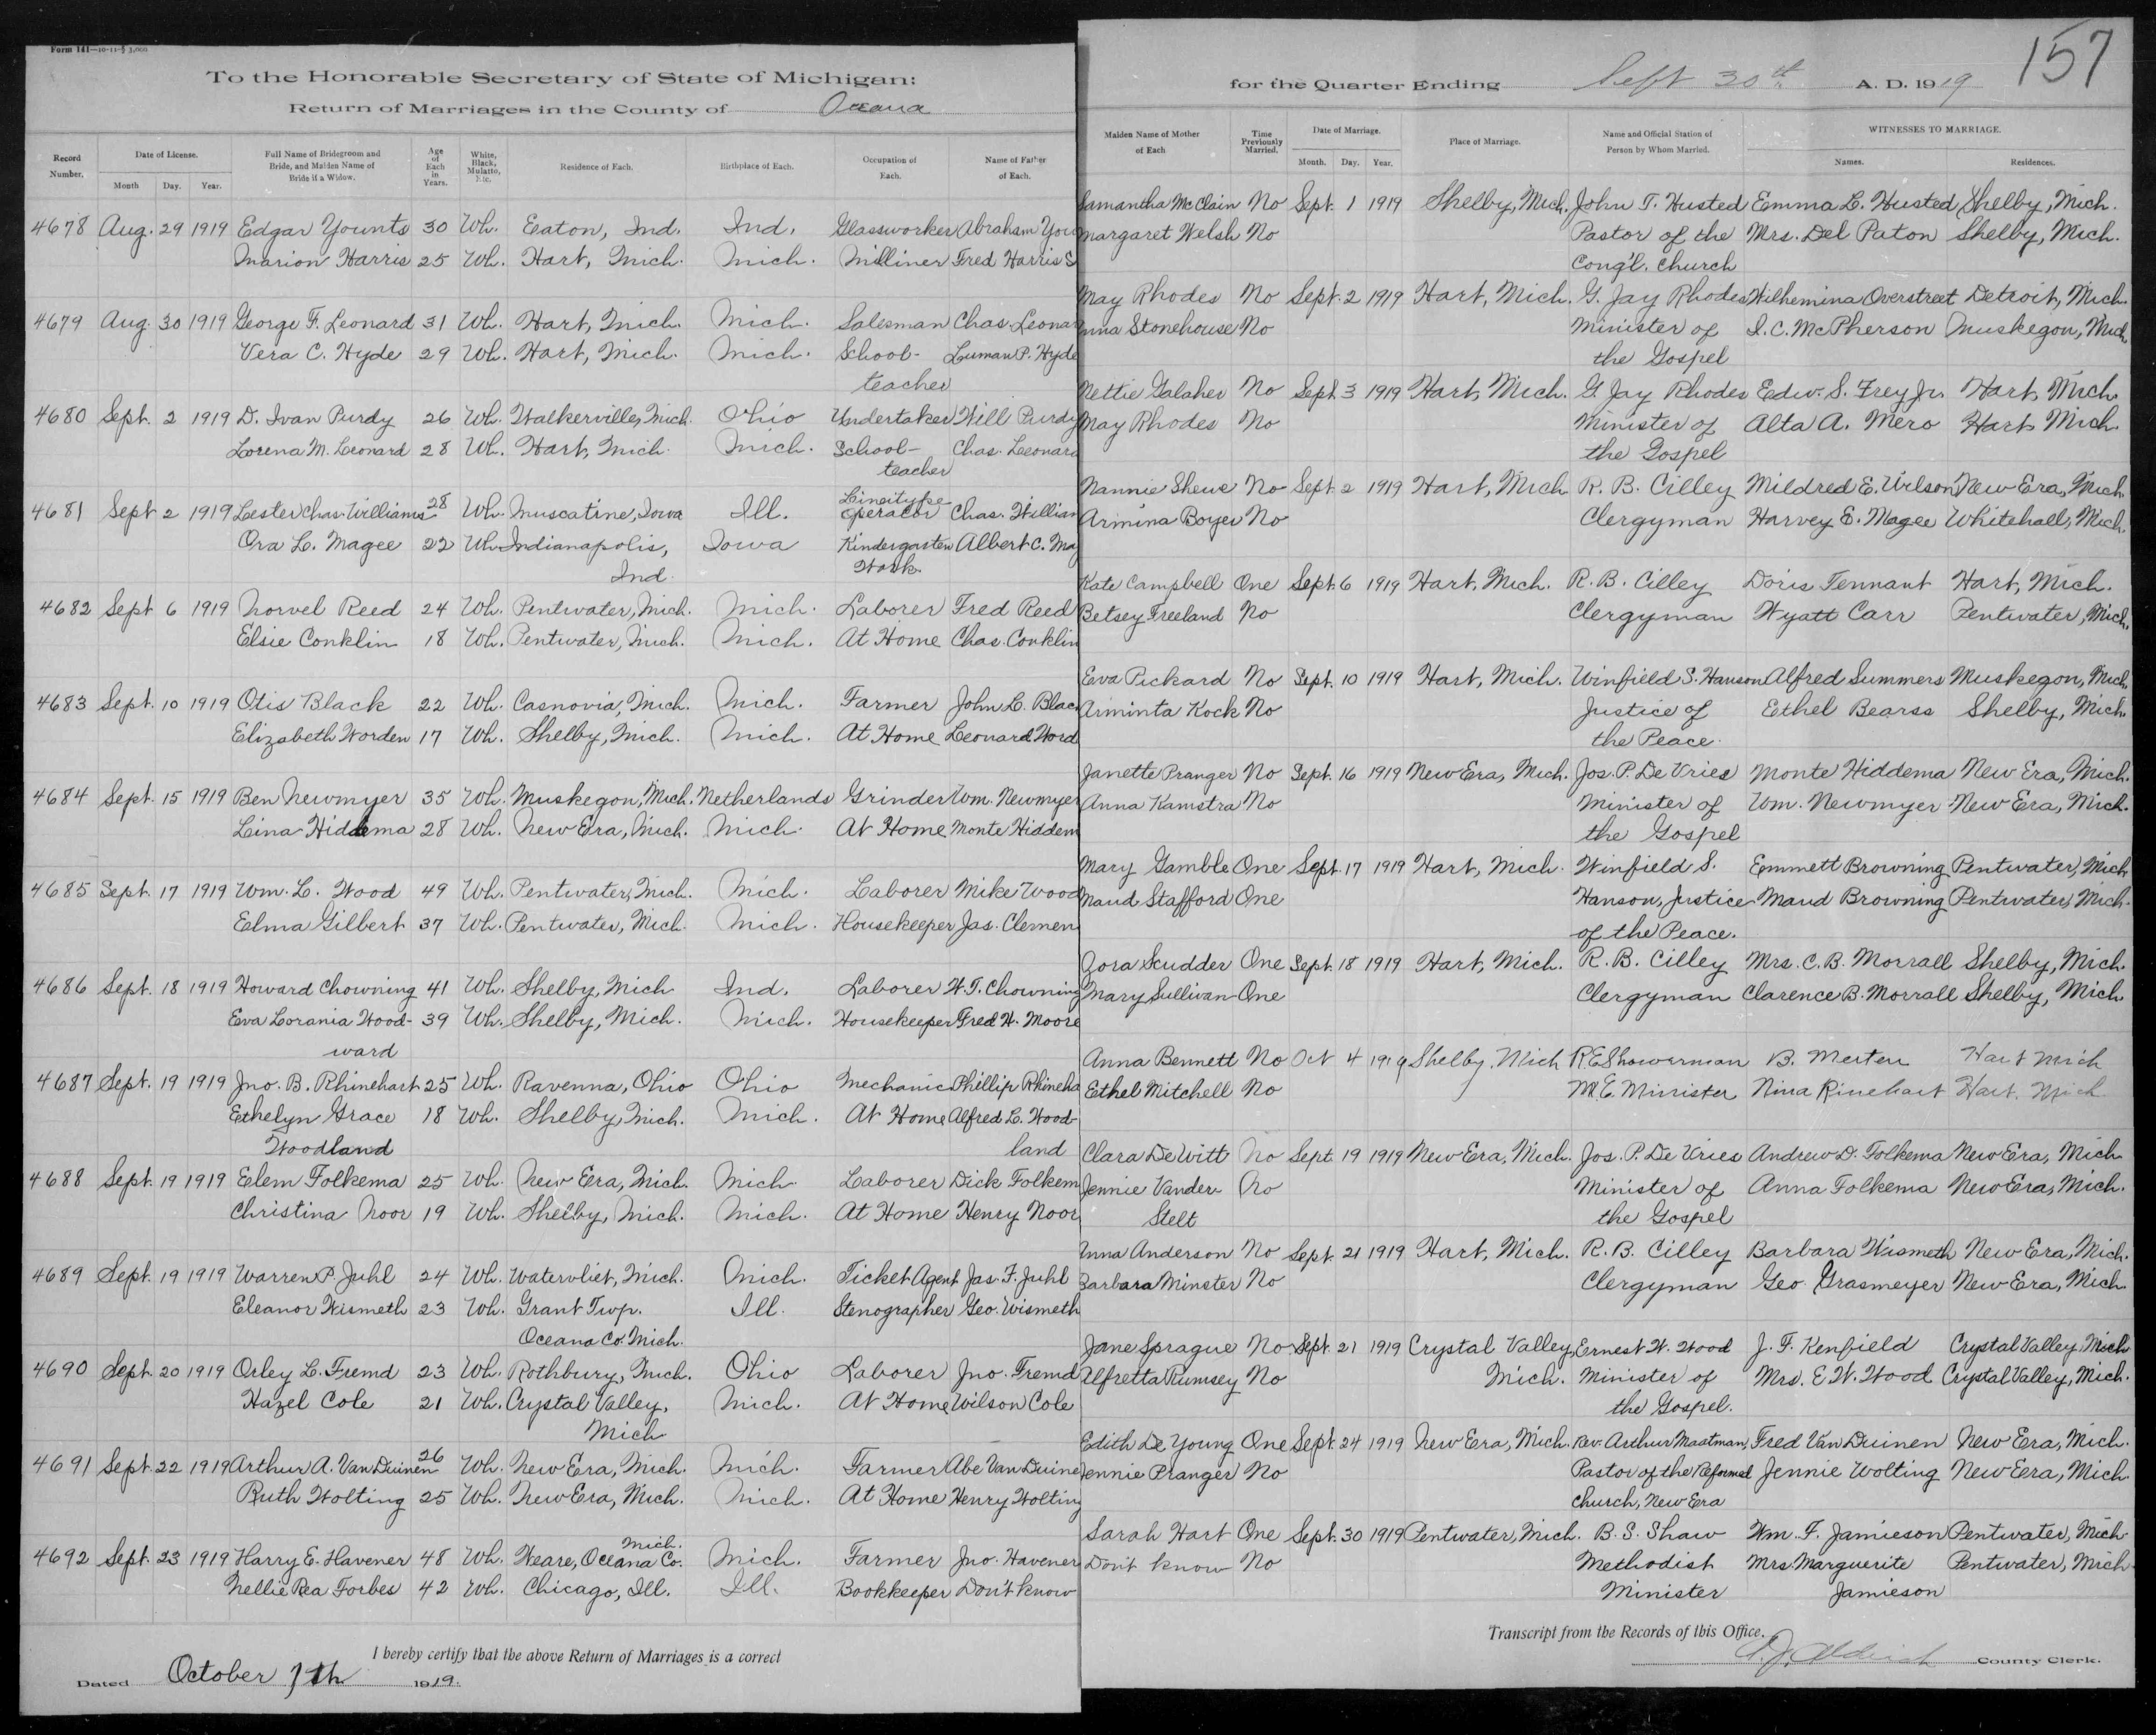 157
Form 141—10-11-§ 3,000
To the Honorable Secretary of State of Michigan:
Return of Marriages in the County of Oceana
for the Quarter Ending Sept 30th A. D. 1919
Record Number. Date of License. Month Day. Year. Full Name of Bridegroom and Bride, and Maiden Name of Bride if a Widow. Age of Each in Years. White, Black, Mulatto, Etc. Residence of Each. Birthplace of Each. Occupation of Each. Name of Father of Each.
Maiden Name of Mother of Each Time Previously Married. Date of Marriage. Month. Day. Year. Place of Marriage. Name and Official Station of Person by Whom Married. WITNESSES TO MARRIAGE. Names. Residences.
4678 Aug. 29 1919 Edgar Younts 30 Wh. Eaton, Ind. Ind. Glassworker Abraham You
Marion Harris 25 Wh. Hart, Mich. Mich. Milliner Fred Harris S
4679 Aug. 30 1919 George F. Leonard 31 Wh. Hart, Mich. Mich. Salesman Chas. Leonar
Vera C. Hyde 29 Wh. Hart, Mich. Mich. School- Luman P. Hyde
teacher
4680 Sept. 2 1919 D. Ivan Purdy 26 Wh. Walkerville, Mich. Ohio Undertaker Will Purdy
Lorena M. Leonard 28 Wh. Hart, Mich. Mich. School- Chas. Leonard
teacher
4681 Sept 2 1919 Lester Chas. Williams 28 Wh. Muscatine, Iowa Ill. Linotype operator Chas. William
Ora L. Magee 22 Wh. Indianapolis, Iowa Kindergarten Albert C. Mag
Ind. Work
4682 Sept 6 1919 Norvel Reed 24 Wh. Pentwater, Mich. Mich. Laborer Fred Reed
Elsie Conklin 18 Wh. Pentwater, Mich. Mich. At Home Chas. Conklin
4683 Sept. 10 1919 Otis Black 22 Wh. Casnovia, Mich. Mich. Farmer John L. Blac
Elizabeth Worden 17 Wh. Shelby, Mich. Mich. At Home Leonard Word
4684 Sept. 15 1919 Ben Newmyer 35 Wh. Muskegon, Mich. Netherlands Grinder Wm. Newmyer
Lina Hiddema 28 Wh. New Era, Mich. Mich. At Home Monte Hiddem
4685 Sept. 17 1919 Wm. L. Wood 49 Wh. Pentwater, Mich. Mich. Laborer Mike Wood
Elma Gilbert 37 Wh. Pentwater, Mich. Mich. Housekeeper Jas. Clemen
4686 Sept. 18 1919 Howard Chowning 41 Wh. Shelby, Mich Ind. Laborer W. T. Chowning
Eva Lorania Wood- 39 Wh. Shelby, Mich. Mich. Housekeeper Fred H. Moore
ward
4687 Sept. 19 1919 Jno. B. Rhinehart 25 Wh. Ravenna, Ohio Ohio Mechanic Phillip Rhineha
Ethelyn Grace 18 Wh. Shelby, Mich. Mich. At Home Alfred L. Wood-
Woodland land
4688 Sept. 19 1919 Elem Folkema 25 Wh. New Era, Mich. Mich Laborer Dick Folkem
Christina Noor 19 Wh. Shelby, Mich. Mich. At Home Henry Noor
4689 Sept. 19 1919 Warren P. Juhl 24 Wh. Watervliet, Mich. Mich. Ticket Agent Jas. F. Juhl
Eleanor Wismeth 23 Wh. Grant Twp. Ill. Stenographer Geo. Wismeth
Oceana Co. Mich.
4690 Sept. 20 1919 Orley L. Fremd 23 Wh. Rothbury, Mich. Ohio Laborer Jno. Fremd
Hazel Cole 21 Wh. Crystal Valley, Mich. At Home Wilson Cole
Mich
4691 Sept. 22 1919 Arthur A. Van Duinen 26 Wh. New Era, Mich. Mich. Farmer Abe Van Duine
Ruth Wolting 25 Wh. New Era, Mich. Mich. At Home Henry Wolting
4692 Sept. 23 1919 Harry E. Havener 48 Wh. Weare, Oceana Co. Mich. Mich. Farmer Jno. Havener
Nellie Rea Forbes 42 Wh. Chicago, Ill. Ill. Bookkeeper Don't know
I hereby certify that the above Return of Marriages is a correct
Dated October 7th 1919.
Samantha McClain No Sept. 1 1919 Shelby, Mich. John T. Husted Emma L. Husted Shelby, Mich.
Margaret Welsh No Pastor of the Mrs. Del Paton Shelby, Mich.
Cong'l. Church
May Rhodes No Sept. 2 1919 Hart, Mich. G. Jay Rhodes Wilhemina Overstreet Detroit, Mich.
Anna Stonehouse No Minister of I. C. McPherson Muskegon, Mich.
the Gospel
Nettie Galaher No Sept. 3 1919 Hart, Mich. G. Jay Rhodes Edw. S. Frey Jr. Hart, Mich.
May Rhodes No Minister of Alta A. Mero Hart, Mich.
the Gospel
Nannie Shewe No Sept. 2 1919 Hart, Mich R. B. Cilley Mildred E. Wilson New Era, Mich.
Armina Boyer No Clergyman Harvey E. Magee Whitehall, Mich.
Kate Campbell One Sept. 6 1919 Hart, Mich. R. B. Cilley Doris Tennant Hart, Mich.
Betsey Freeland No Clergyman Wyatt Carr Pentwater, Mich.
Eva Pickard No Sept. 10 1919 Hart, Mich. Winfield S. Hanson Alfred Summers Muskegon, Mich.
Arminta Kock No Justice of Ethel Bearss Shelby, Mich.
the Peace.
Janette Pranger No Sept. 16 1919 New Era, Mich. Jos. P. De Vries Monte Hiddema New Era, Mich.
Anna Kamstra No Minister of Wm. Newmyer New Era, Mich.
the Gospel
Mary Gamble One Sept. 17 1919 Hart, Mich. Winfield S. Emmett Browning Pentwater, Mich
Maud Stafford One Hanson, Justice Maud Browning Pentwater, Mich.
of the Peace.
Zora Scudder One Sept. 18 1919 Hart, Mich. R. B. Cilley Mrs. C. B. Morrall Shelby, Mich.
Mary Sullivan One Clergyman Clarence B. Morrall Shelby, Mich.
Anna Bennett No Oct 4 1919 Shelby, Mich R E Showerman B. Merten Hart Mich
Ethel Mitchell No M. E. Minister Nina Rinehart Hart. Mich
Clara De Witt No Sept. 19 1919 New Era, Mich. Jos. P. De Vries Andrew D. Folkema New Era, Mich.
Jennie Vander No Minister of Anna Folkema New Era, Mich.
Stelt the Gospel
Anna Anderson No Sept. 21 1919 Hart, Mich. R. B. Cilley Barbara Wismeth New Era, Mich.
Barbara Minster No Clergyman Geo Grasmeyer New Era, Mich.
Jane Sprague No Sept. 21 1919 Crystal Valley, Ernest W. Wood J. F. Kenfield Crystal Valley, Mich
Alfretta Rumsey No Mich. Minister of Mrs. E. W. Wood Crystal Valley, Mich.
the Gospel.
Edith De Young One Sept. 24 1919 New Era, Mich. Rev. Arthur Maatman, Fred Van Duinen New Era, Mich.
Jennie Pranger No Pastor of the Reformed Jennie Wolting New Era, Mich.
Church, New Era
Sarah Hart One Sept. 30 1919 Pentwater, Mich. B. S. Shaw Wm. F. Jamieson Pentwater, Mich
Don't know No Methodist Mrs. Marguerite Pentwater, Mich
Minister Jamieson
Transcript from the Records of this Office.
County Clerk.